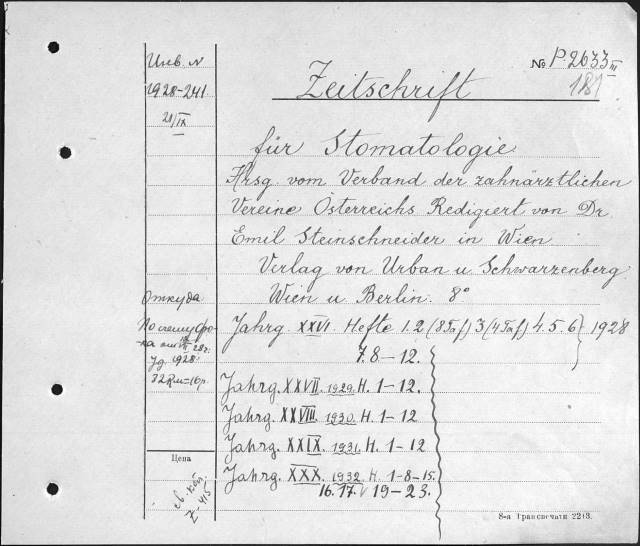 Инв. №
1928-241
21/IX
№ P. 2633 III
181
Zeitschrift
für Stomatologie
Hrsg. vom Verband der zahnärztlichen
Vereine Österreichs Redigiert von Dr.
Emil Steinschneider in Wien
Verlag von Urban u. Schwarzenberg.
Wien u. Berlin. 8°
Откуда
По счету
Jahrg. XXVI. Hefte 1.2 (8Taf) 3 (4Taf) 4. 5. 6 } 1928
7. 8-12.
1928.
Jahrg. XXVII. 1929. H. 1-12.
Jahrg. XXVIII. 1930. H. 1-12
Jahrg. XXIX. 1931. H. 1-12
Jahrg. XXX. 1932. H. 1-8-15.
16. 17. 19-23.
Цена
8-я Транспечати 2213.